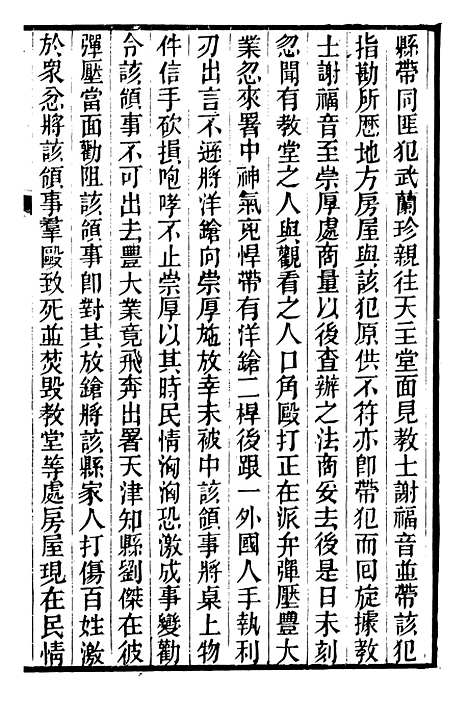 縣帶同匪犯武蘭珍親往天主堂面見教士謝福音並帶該犯
指勘所歷地方房屋與該犯原供不符亦卽帶犯而回旋據教
士謝福音至崇厚處商量以後查辦之法商妥去後是日未刻
忽聞有教堂之人與觀看之人口角毆打正在派弁彈壓豐大
業忽來署中神氣兇悍帶有洋鎗二桿後跟一外國人手執利
刃出言不遜將洋鎗向崇厚施放幸未被中該領事將桌上物
件信手砍損咆哮不止崇厚以其時民情洶洶恐激成事變勸
令該領事不可出去豐大業竟飛奔出署天津知縣劉傑在彼
彈壓當面勸阻該領事卽對其放鎗將該縣家人打傷百姓激
於衆忿將該領事羣毆致死並焚毀教堂等處房屋現在民情